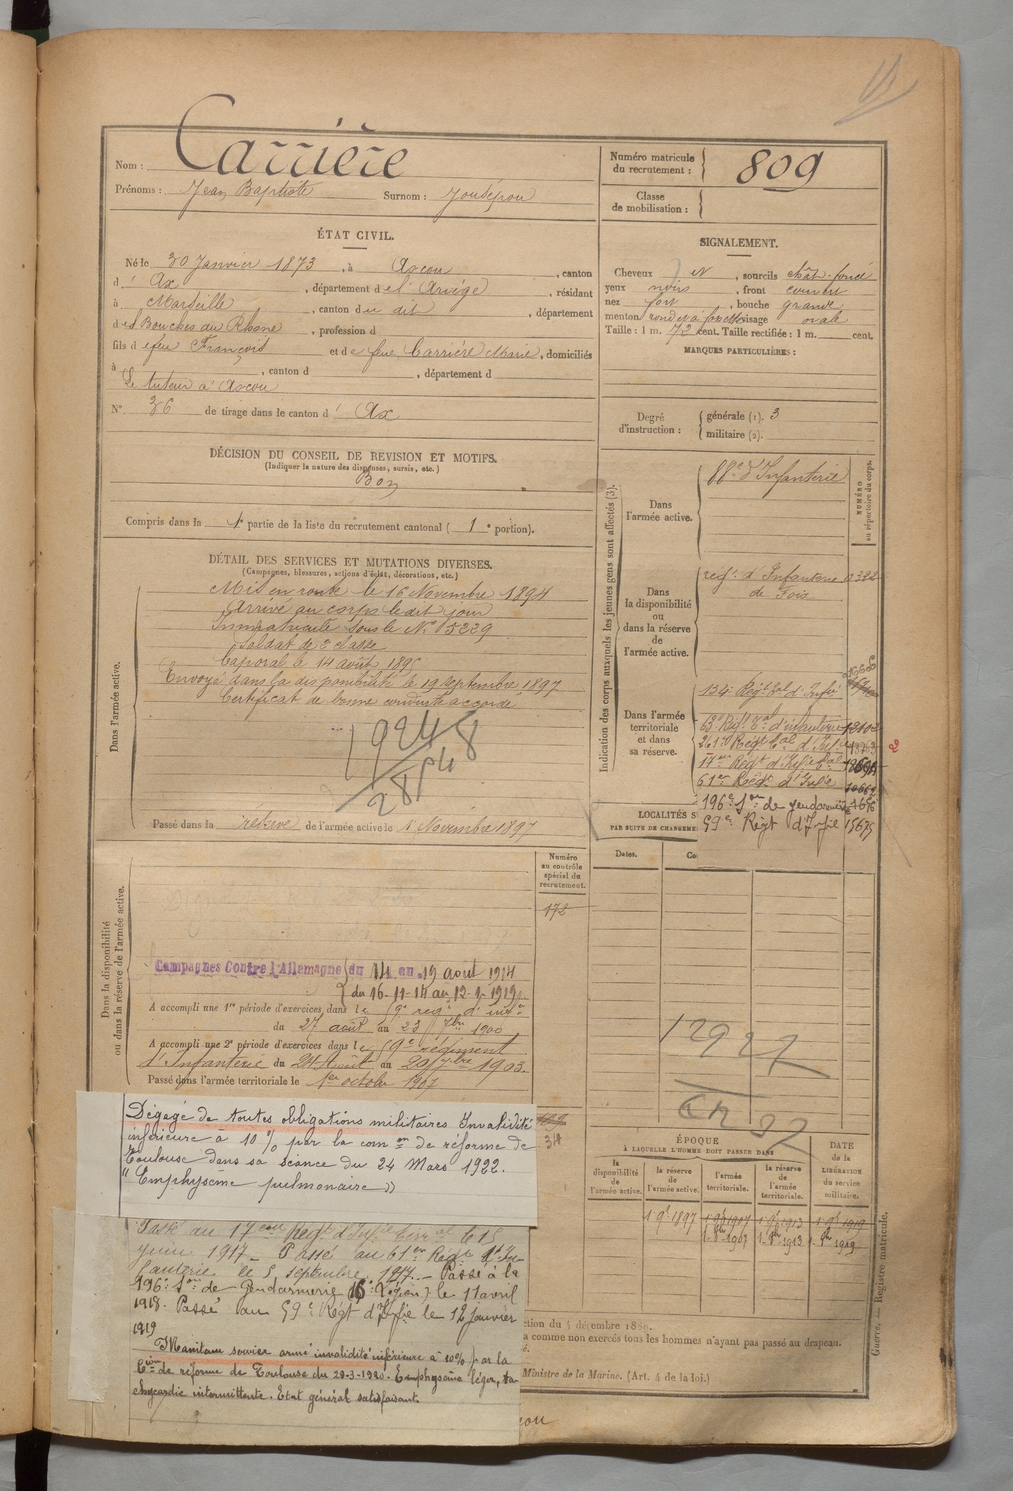 Nom : Carrière
Prénoms : Jean Baptiste Surnom :
ÉTAT CIVIL.
Né le 30 Janvier 1873, à Ascou, canton
d' Ax, département de l'Ariège, résidant
à Marseille, canton du dit, département
d es Bouches du Rhône, profession d
fils d e feu François et d e feue Carrière Marie, domiciliés
à , canton d , département d
Le tuteur à Ascou
N° 36 de tirage dans le canton d' Ax
DÉCISION DU CONSEIL DE REVISION ET MOTIFS.
(Indiquer la nature des dispenses, sursis, etc.)
Bon
Compris dans la 1e partie de la liste du recrutement cantonal ( 1e portion).
DÉTAIL DES SERVICES ET MUTATIONS DIVERSES.
(Campagnes, blessures, actions d'éclat, décorations, etc.)
Dans l'armée active.
Mis en route le 16 Novembre 1894
Arrivé au corps le dit jour
Immatriculé sous le N° 5229
Soldat de 2e classe
Caporal le 14 août 1895
Envoyé dans la disponibilité le 19 septembre 1897
Certificat de bonne conduite accordé
Passé dans la réserve de l'armée active le 1 Novembre 1897
Dans la disponibilité
ou dans la réserve de l'armée active.
Numéro
au contrôle
spécial du
recrutement.
172
Campagnes Contre l'Allemagne du 14 au 19 août 1914
du 16-11-14 au 12-1-1919
A accompli une 1re période d'exercices dans le 59e régt d'infie
du 27 août au 23 7bre 1900
A accompli une 2e période d'exercices dans le 59e régiment
d'Infanterie du 24 Août au 20 7bre 1903.
Passé dans l'armée territoriale le 1er octobre 1907
Dégagé de toutes obligations militaires Invalidité
inférieure à 10 % par la com on de réforme de
Toulouse dans sa séance du 24 Mars 1922.
"Emphysème pulmonaire"
Passé au 17eme Régt d'Infie Terr ale le 15
juin 1917 _ Passé au 61eme Régt d'In-
fanterie le 5 septembre 1917 _ Passé à la
196e Son de Gendarmerie (16e Région) le 11 avril
1918. Passé au 59e Régt d'Infie le 12 janvier
1919
Maintenu service armé invalidité inférieure à 10% par la
Cion de réforme de Toulouse du 29-3-1920. Emphysème léger, ta-
chycardie intermittente. Etat général satisfaisant.
Numéro matricule
du recrutement : 809
Classe
de mobilisation :
SIGNALEMENT.
Cheveux N, sourcils chât. foncé
yeux noirs, front couvert
nez fort, bouche grande
menton rond et à fossette visage ovale
Taille : 1 m. 72 cent. Taille rectifiée : 1 m. cent.
MARQUES PARTICULIÈRES :
Degré
d'instruction : générale (1). 3
militaire (2).
Indication des corps auxquels les jeunes gens sont affectés (3).
NUMÉRO
au répertoire du corps.
Dans
l'armée active.
88e d'Infanterie
Dans
la disponibilité
ou
dans la réserve
de
l'armée active.
régt d'Infanterie
de Foix
Dans l'armée
territoriale
et dans
sa réserve.
134e Régt tal d'Infie
63e Régt Tal d'infanterie 12102
261e Régt Tal d'Infie
17me Régt d'Infie Tale
61me Régt d'Infie
196e Son de gendarmerie
59e Régt d'Infie 15675
LOCALITÉS S
PAR SUITE DE CHANGEME
Dates.
Co
ÉPOQUE
À LAQUELLE L'HOMME DOIT PASSER DANS
la
disponibilité
de
l'armée active.
la réserve
de
l'armée active.
l'armée
territoriale.
la réserve
de
l'armée
territoriale.
DATE
de la
LIBÉRATION
du service
militaire.
1 9b 1897
ction du 4 décembre 1889.
a comme non exercés tous les hommes n'ayant pas passé au drapeau.
Ministre de la Marine. (Art. 4 de la loi.)
Guerre. — Registre matricule.